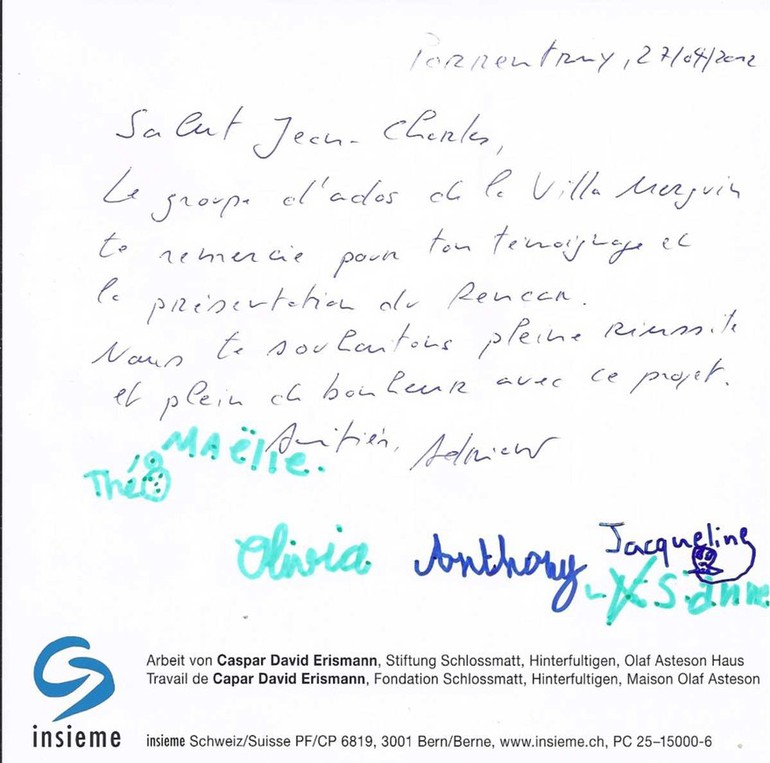 Porrentruy, 27/04/2012
Salut Jean-Charles,
Le groupe d'ados de la Villa Merguin
te remercie pour ton témoignage et
la présentation du Rencar.
Nous te souhaitons pleine réussite
et plein de bonheur avec ce projet.
Amitiés, Adrien
MAëlie.
Théo
Olivia Anthony Jacqueline
insieme
Arbeit von Caspar David Erismann, Stiftung Schlossmatt, Hinterfultigen, Olaf Asteson Haus
Travail de Capar David Erismann, Fondation Schlossmatt, Hinterfultigen, Maison Olaf Asteson
insieme Schweiz/Suisse PF/CP 6819, 3001 Bern/Berne, www.insieme.ch, PC 25-15000-6